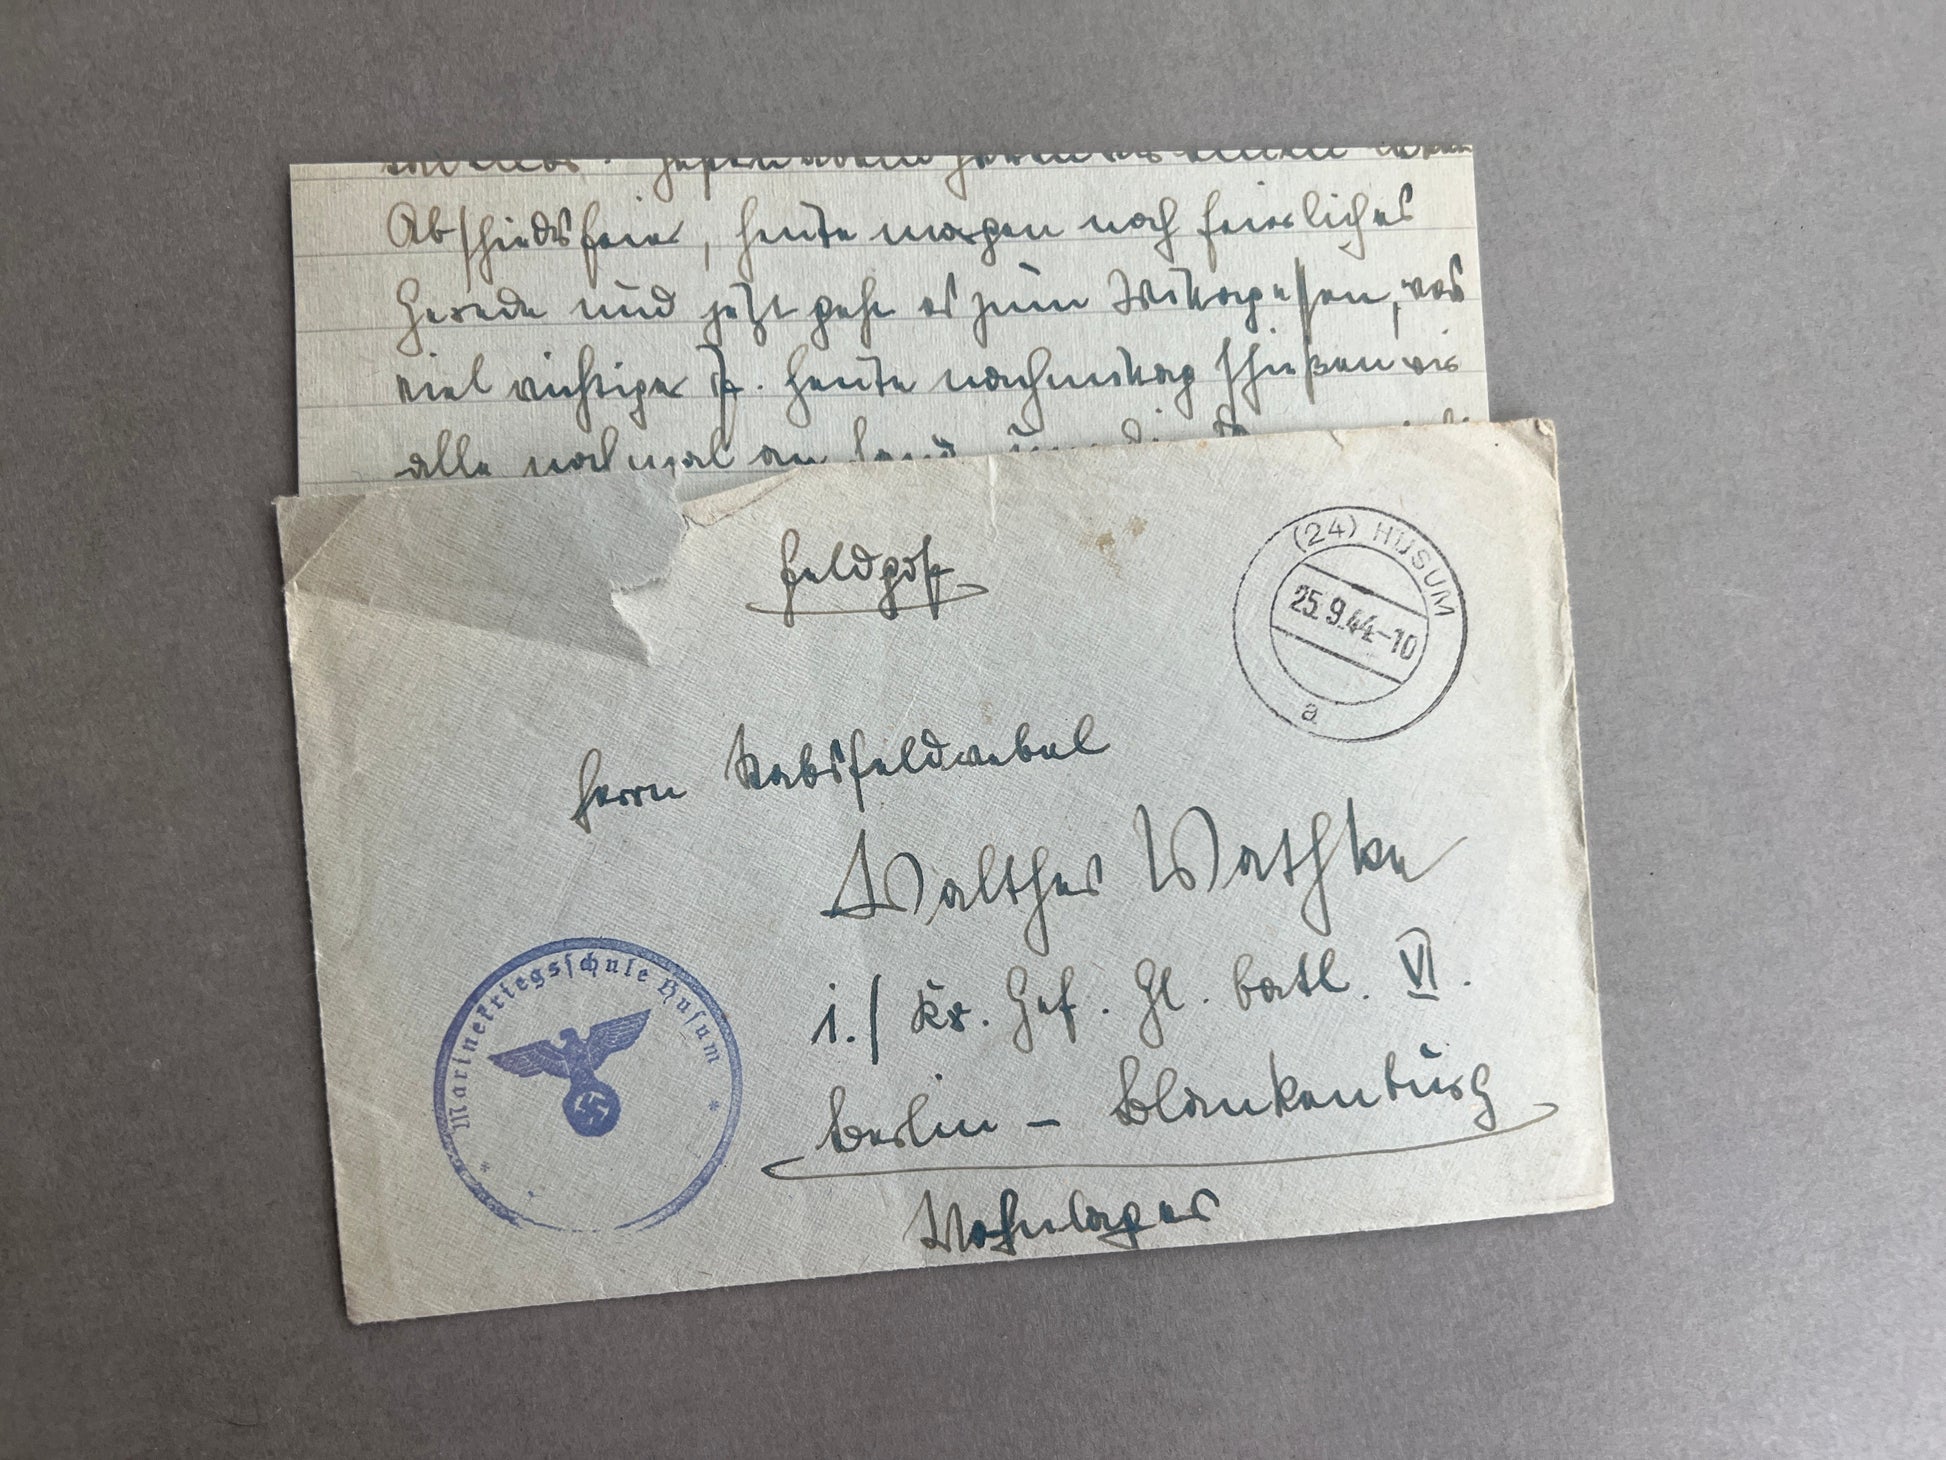 Abschiedsfeier, heute morgen noch feierliches
Gerede und jetzt gehe es zum Mittagessen, was
viel wichtiger ist. Heute nachmittag schießen wir
alle noch mal an Land,
Feldpost
(24) HUSUM
25.9.44-10
a
Herrn Stabsfeldwebel
Walther Wathke
1./ Kr. Gef. Gl. Batl. VI.
Berlin - Blankenburg
Wohnlager
Marinekriegsschule Husum